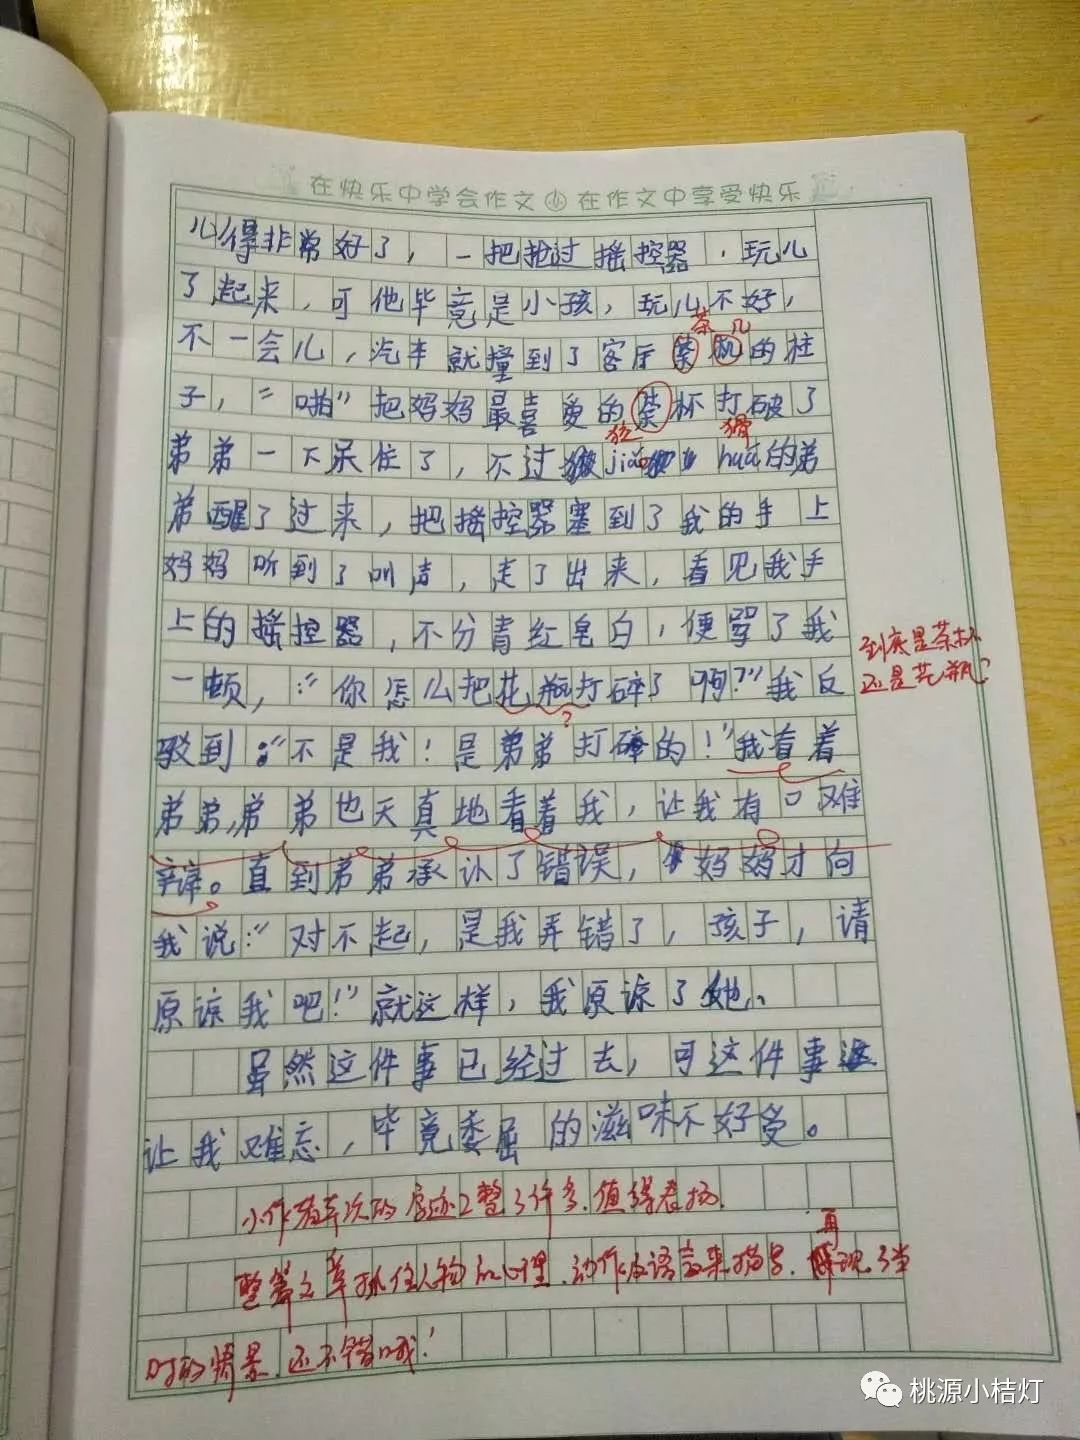 在快乐中学会作文 小 在作文中享受快乐
心得非常好了，一把抢过摇控器，玩儿
了起来，可他毕竟是小孩，玩儿不好，
茶几
不一会儿，汽车就撞到了客厅 的柱
子，“啪”把妈妈最喜爱的 杯打破了
狡 猾
弟弟一下呆住了，不过 jiǎo huá的弟
弟醒了过来，把摇控器塞到了我的手上
妈妈听到了叫声，走了出来，看见我手
上的摇控器，不分青红皂白，便骂了我
一顿，：“你怎么把花瓶打碎了啊？”我反
?
到底是茶杯
还是花瓶？
驳到：“不是我！是弟弟打碎的！”我看着
弟弟，弟弟也天真地看着我，让我有口难
辩。直到弟弟承认了错误，妈妈才向
我说：“对不起，是我弄错了，孩子，请
原谅我吧！”就这样，我原谅了她、
虽然这件事已经过去，可这件事
让我难忘，毕竟委屈的滋味不好受。
小作者本次的字迹工整了许多，值得表扬。
整篇文章抓住人物的心理、动作及语言来描写，再现了当
时的情景，还不错哦！
桃源小桔灯